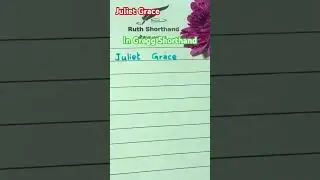 Juliet Grace
Ruth Shorthand
In Gregg Shorthand
Juliet Grace